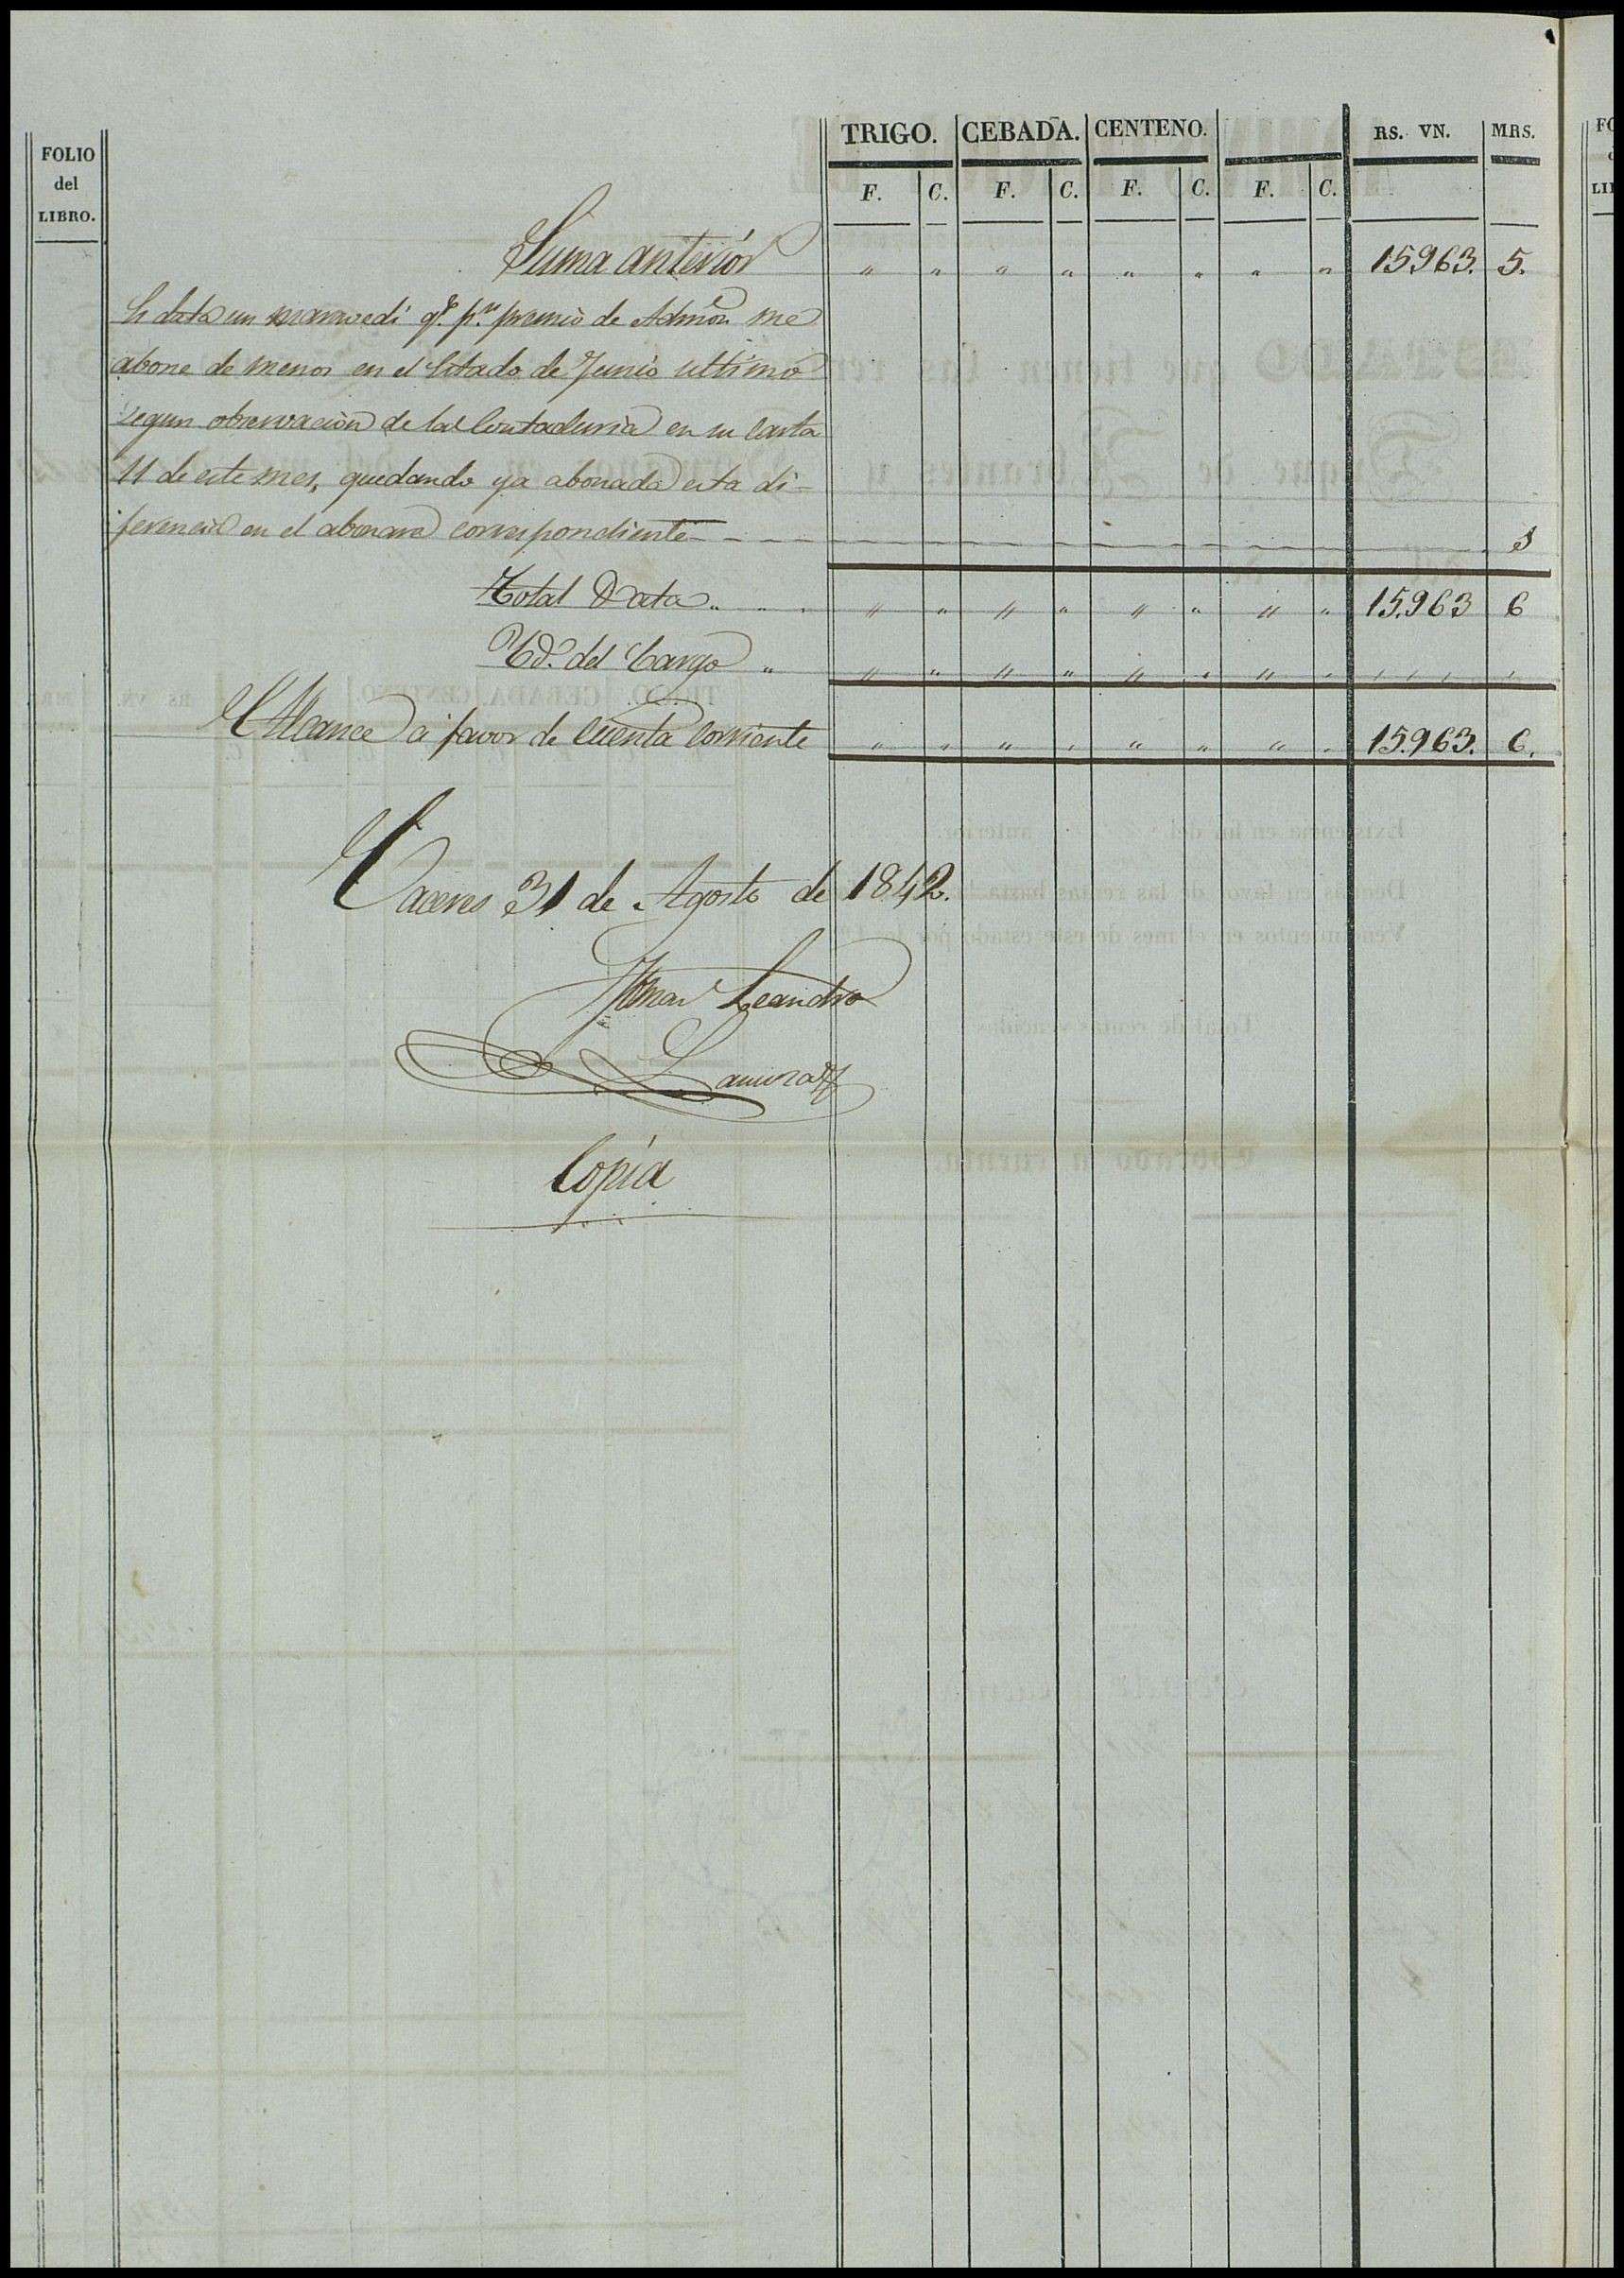 FOLIO
del
LIBRO.
TRIGO. CEBADA. CENTENO. RS. VN. MRS.
F. C. F. C. F. C. F. C.
Suma anterior " " " " " " " " 15963. 5.
Es data un maravedi qe. pr. premio de Admon me
abone de menos en el Estado de Junio ultimo
segun observacion de la Contaduria en su Carta
11 de este mes, quedando ya abonada esta di-
ferencia en el abonare correspondiente 1
Total Data " " " " " " " " 15.963 6
Yd. del Cargo " " " " " " " " " , , , ,
Alcance á favor de Cuenta Corriente " " " " " " " " 15.963. 6.
Caceres 31 de Agosto de 1842.
Leandro
Copia